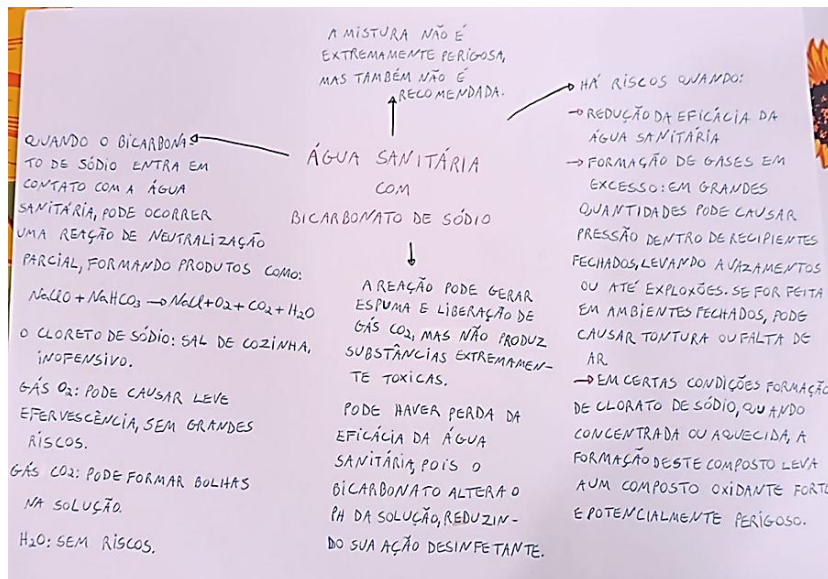 A MISTURA NÃO É
EXTREMAMENTE PERIGOSA,
MAS TAMBÉM NÃO É
RECOMENDADA.
ÁGUA SANITÁRIA
COM
BICARBONATO DE SÓDIO
QUANDO O BICARBONA-
TO DE SÓDIO ENTRA EM
CONTATO COM A ÁGUA
SANITÁRIA, PODE OCORRER
UMA REAÇÃO DE NEUTRALIZAÇÃO
PARCIAL, FORMANDO PRODUTOS COMO:
NaClO + NaHCO3 → NaCl + O2 + CO2 + H2O
O CLORETO DE SÓDIO: SAL DE COZINHA,
INOFENSIVO.
GÁS O2: PODE CAUSAR LEVE
EFERVESCÊNCIA, SEM GRANDES
RISCOS.
GÁS CO2: PODE FORMAR BOLHAS
NA SOLUÇÃO.
H2O: SEM RISCOS.
A REAÇÃO PODE GERAR
ESPUMA E LIBERAÇÃO DE
GÁS CO2, MAS NÃO PRODUZ
SUBSTÂNCIAS EXTREMAMEN-
TE TOXICAS.
PODE HAVER PERDA DA
EFICÁCIA DA ÁGUA
SANITÁRIA, POIS O
BICARBONATO ALTERA O
PH DA SOLUÇÃO, REDUZIN-
DO SUA AÇÃO DESINFETANTE.
HÁ RISCOS QUANDO:
→ REDUÇÃO DA EFICÁCIA DA
ÁGUA SANITÁRIA
→ FORMAÇÃO DE GASES EM
EXCESSO: EM GRANDES
QUANTIDADES PODE CAUSAR
PRESSÃO DENTRO DE RECIPIENTES
FECHADOS, LEVANDO A VAZAMENTOS
OU ATÉ EXPLOXÕES. SE FOR FEITA
EM AMBIENTES FECHADOS, PODE
CAUSAR TONTURA OU FALTA DE
AR
→ EM CERTAS CONDIÇÕES FORMAÇÃO
DE CLORATO DE SÓDIO, QUANDO
CONCENTRADA OU AQUECIDA, A
FORMAÇÃO DESTE COMPOSTO LEVA
A UM COMPOSTO OXIDANTE FORTE
E POTENCIALMENTE PERIGOSO.